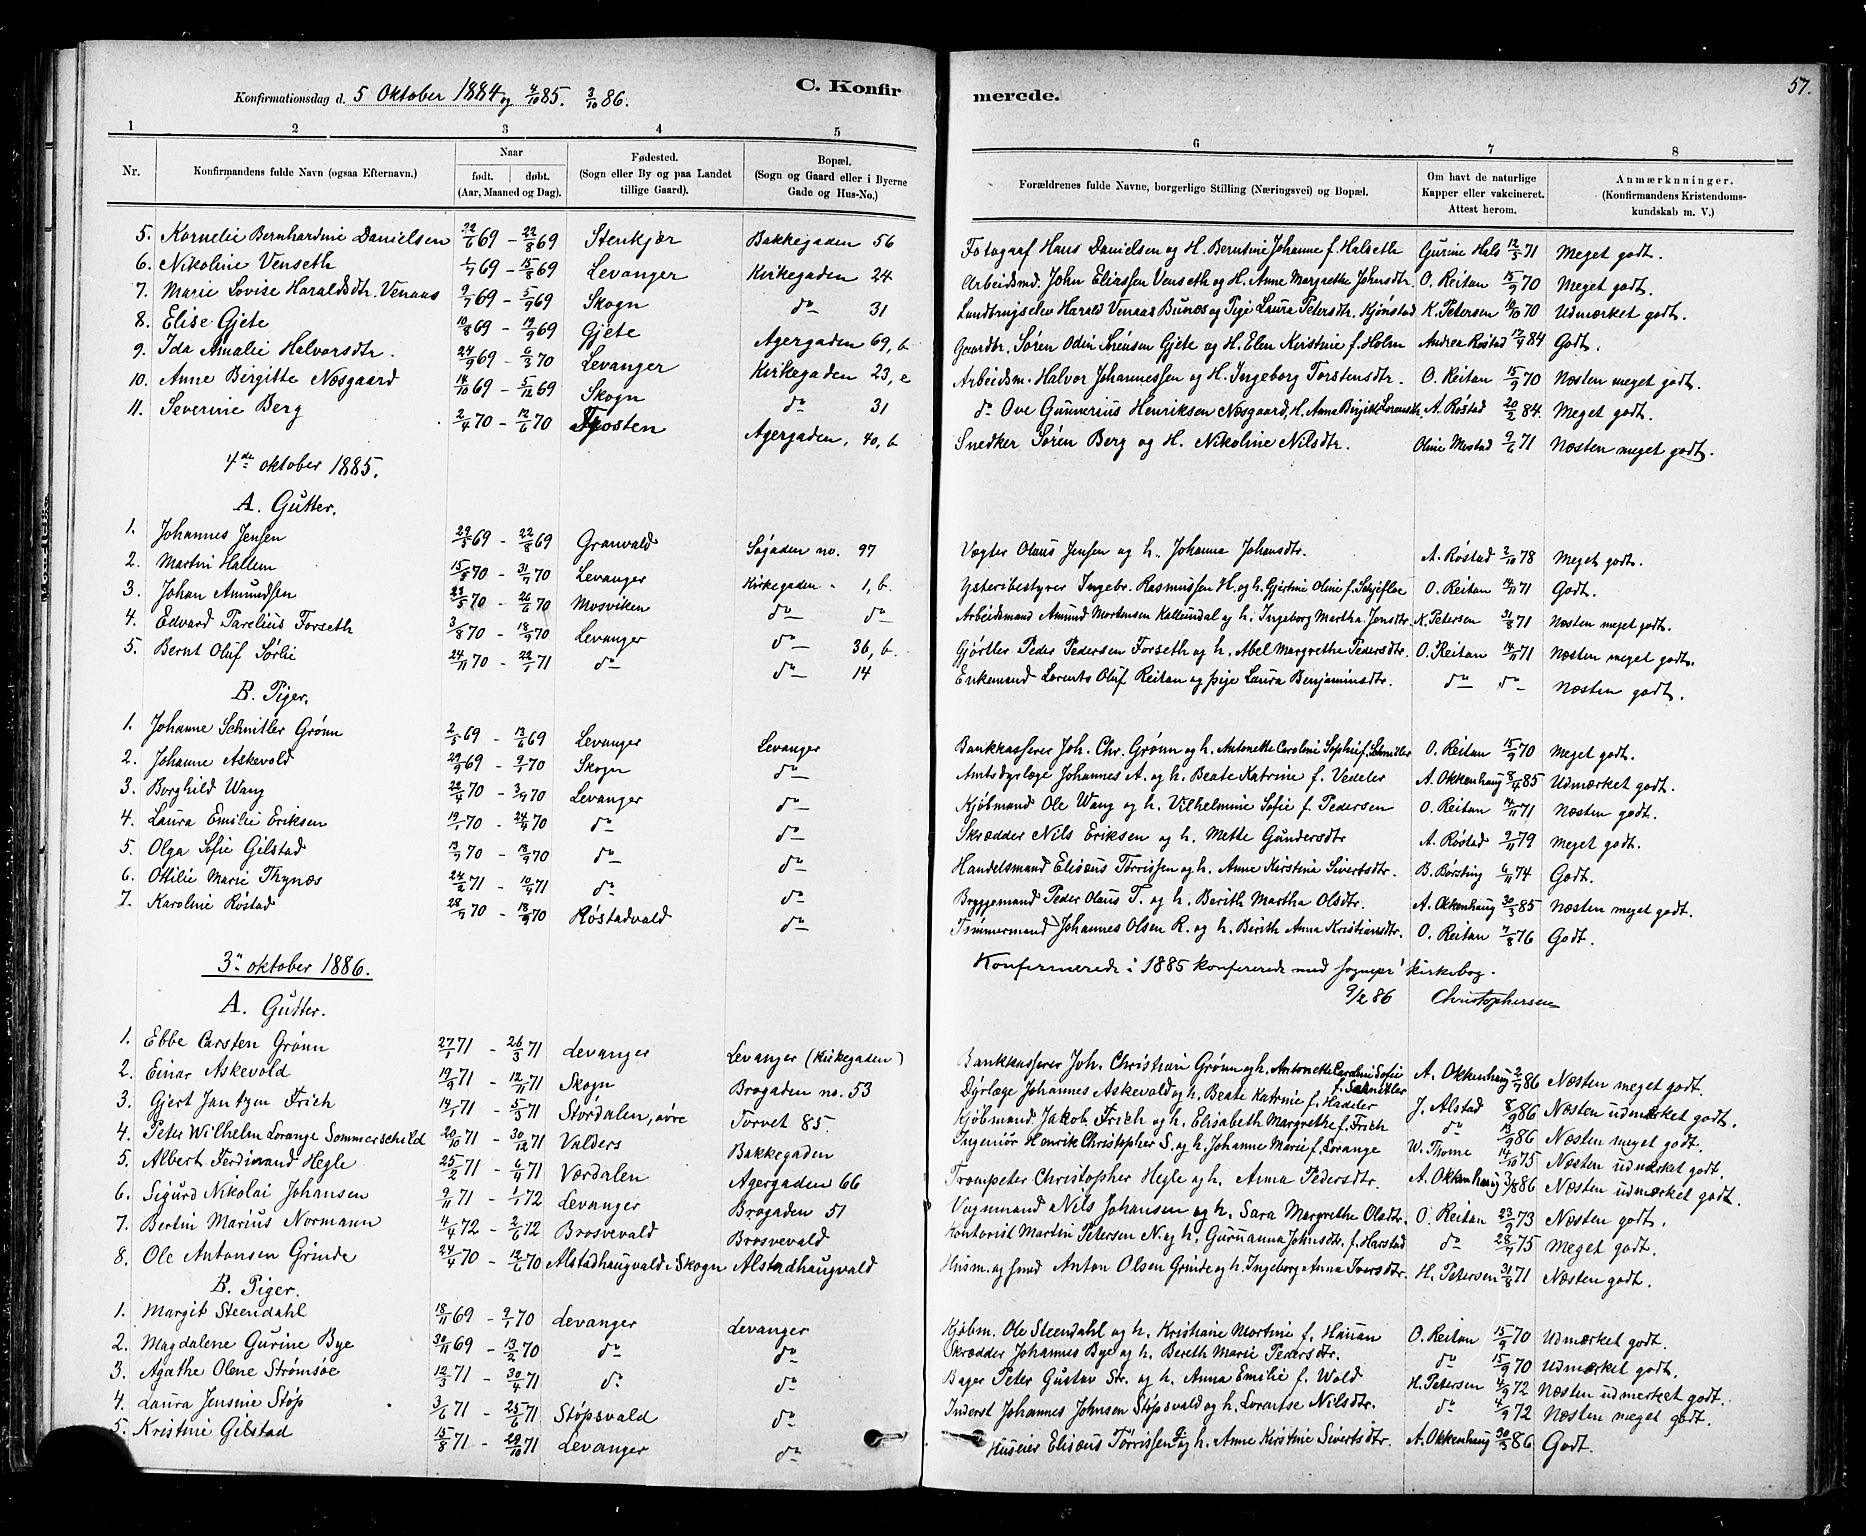 57.
Konfirmationsdag d. 5 Oktober 1884 og 4/10 85. 3/10 86.
C. Konfirmerede.
1 2 3 4 5 6 7 8
Nr. Konfirmandens fulde Navn (ogsaa Efternavn.) Naar født. døbt. (Aar, Maaned og Dag). Fødested. (Sogn eller By og paa Landet tillige Gaard). Bopæl. (Sogn og Gaard eller i Byerne Gade og Hus-No.) Forældrenes fulde Navne, borgerlige Stilling (Næringsvei) og Bopæl. Om havt de naturlige Kapper eller vakcineret. Attest herom. Anmærkninger. (Konfirmandens Kristendomskundskab m. V.)
5. Kornelie Bernhardine Danielsen 22/6 69 - 22/8 69 Stenkjær Bakkegaden 56 Fotograf Hans Danielsen og H. Berntine Johanne f. Halseth Gurine Hals 12/5 71 Meget godt.
6. Nikoline Venseth 1/7 69 - 15/8 69 Levanger Kirkegaden 24 Arbeidsmd. John Eliassen Venseth og H. Anne Margrethe Johnsdtr. O. Reitan 15/9 70 Meget godt.
7. Marie Lovise Haraldsdtr. Venaas 9/7 69 - 5/9 69 Skogn do 31 Landbrugselev Harald Venaas Bunæs og Pige Laura Petersdtr. Kjønstad K. Petersen 12/10 70 Udmærket godt.
8. Elise Gjete 10/8 69 - 19/9 69 Gjete Agergaden 69, b Gaardbr. Søren Odin Sørensen Gjete og H. Elen Kirstine f. Holm Andrea Røstad 12/9 84 Godt.
9. Ida Amalie Halvorsdtr. 24/9 69 - 6/3 70 Levanger Kirkegaden 23, e Arbeidsm. Halvor Johannessen og H. Ingeborg Torstensdtr. O. Reitan 15/9 70 Næsten meget godt.
10. Anne Birgitte Næsgaard 14/10 69 - 5/12 69 Skogn do 31 do Ove Gunnerius Henriksen Næsgaard, H. Anna Birgitte Lorentsdr. A. Røstad 20/2 84 Meget godt.
11. Severine Berg 2/4 70 - 12/6 70 Frosten Agergaden, 40, b Snedker Søren Berg og H. Nikoline Nilsdtr. Oline Mostad 9/6 71 Næsten meget godt.
4de oktober 1885.
A. Gutter.
1. Johannes Jensen 29/5 69 - 22/8 69 Granvald Søgaden no. 97 Vægter Olaus Jensen og h. Johanna Johansdtr. A. Røstad 2/10 78 Meget godt.
2. Martin Hallem 15/5 70 - 31/7 70 Levanger Kirkegaden - 1, b. Ysteribestyrer Ingebr. Rasmussen H. og h. Gjertine Oline f. Schjefloe O. Reitan 14/11 71 Godt.
3. Johan Amundsen 23/5 70 - 26/6 70 Mosviken do do Arbeidsmand Amund Mortensen Kallundal og h. Ingeborg Martha Jensdtr. K. Petersen 31/8 71 Næsten meget godt.
4. Edvard Parelius Forseth 3/8 70 - 18/9 70 Levanger do 36, b. Gjørtler Peder Pedersen Forseth og h. Abel Margrethe Pedersdtr. O. Reitan 14/11 71 Næsten meget godt.
5. Bernt Oluf Sørlie 24/11 70 - 22/1 71 do do 14 Enkemand Lorents Oluf Reitan og pige Laura Benjaminsdtr. do do Næsten godt.
B. Piger.
1. Johanne Schnitler Grønn 2/5 69 - 13/6 69 Levanger Levanger Bankkasserer Joh. Chr. Grønn og h. Antonette Caroline Sophie f. Schnitler O. Reitan 15/9 70 Meget godt.
2. Johanne Askevold 29/9 69 - 9/1 70 Skogn do Amtsdyrlæge Johannes A. og h. Beate Katrine f. Vedeler A. Okkenhaug 8/4 85 Udmærket godt.
3. Borghild Wang 22/4 70 - 3/7 70 Levanger do Kjøbmand Ole Wang og h. Vilhelmine Sofie f. Pedersen O. Reitan 14/11 71 Næsten godt.
4. Laura Emilie Eriksen 19/1 70 - 24/4 70 do do Skrædder Nils Eriksen og h. Mette Gundersdtr A. Røstad 9/11 79 Meget godt.
5. Olga Sofie Gilstad 13/7 70 - 18/9 70 do do Handelsmand Elisæus Tørrissen og h. Anne Kirstina Sivertsdtr. B. Børsting 6/11 74 Godt.
6. Ottilie Marie Thynæs 24/2 71 - 10/4 71 do do Bryggemand Peder Olaus T. og h. Berith Martha Olsdtr. A. Okkenhaug 30/3 85 Næsten meget godt.
7. Karoline Røstad 28/7 70 - 18/9 70 Røstadvald do Tømmermand Johannes Olsen R. og h. Berith Anna Kristiansdtr. O. Reitan 7/8 76 Godt.
Konfirmerede i 1885 konfererede med sognepr. kirkebog.
9/2 86 Christophersen
3. oktober 1886.
A. Gutter.
1. Ebbe Carsten Grønn 27/1 71 - 26/3 71 Levanger Levanger (Kirkegaden) Bankkasserer Joh. Christian Grønn og h. Antonette Caroline Sofie f. Schnitler A. Okkenhaug 2/7 86 Næsten meget godt.
2. Einar Askevold 19/9 71 - 12/11 71 Skogn Brogaden no. 53 Dyrlæge Johannes Askevold og h. Beate Katrine f. Hadeler J. Alstad 8/9 86 Næsten udmærket godt.
3. Gjert Jantzen Frich 14/1 71 - 5/3 71 Størdalen, øvre Torvet 85. Kjøbmand Jakob Frich og h. Elisabeth Margrethe f. Frich do 13/9 86 Næsten meget godt.
4. Peter Wilhelm Lorange Sommerschild 20/10 71 - 30/12 71 Valders Bakkegaden Ingeniør Henrik Christopher S. og h. Johanne Marie f. Lorange W. Thome 14/10 75 Næsten udmærket godt.
5. Albert Ferdinand Hegle 25/2 71 - 6/4 71 Værdalen Agergaden 66 Trompeter Christopher Hegle og h. Anna Pedersdtr. A. Okkenhaug 3/8 86 Næsten udmærket godt.
6. Sigurd Nikolai Johansen 9/11 71 - 1/1 72 Levanger Brogaden 51 Vognmand Nils Johansen og h. Sara Margrethe Olsdtr. O. Reitan 23/9 73 Næsten godt.
7. Bertin Marius Normann 4/4 72 - 2/6 72 Brosvevald Brosvevald Kontorist Martin Petersen N. og h. Guruanna Johnsdtr. f. Harstad do 28/7 75 Meget godt.
8. Ole Antonsen Grinde 24/4 70 - 12/6 70 Alstadhaugvald i Skogn Alstadhaugvald Husm. og smed Anton Olsen Grinde og h. Ingeborg Anna Iversdtr. H. Petersen 31/8 71 Næsten godt.
B. Piger.
1. Margit Steendahl 18/11 69 - 9/1 70 Levanger Levanger Kjøbm. Ole Steendahl og h. Kristiane Martine f. Hauan O. Reitan 15/9 70 Udmærket godt.
2. Magdalene Gurine Bye 30/11 69 - 13/2 70 do do Skrædder Johannes Bye og h. Bereth Marie Pedersdtr. do 15/9 70 Udmærket godt.
3. Agathe Olene Strømsøe 12/3 71 - 30/4 71 do do Bager Peter Gustav Str. og h. Anna Emilie f. Wold H. Petersen 4/9 72 Næsten udmerket godt.
4. Laura Jensine Støp 3/6 71 - 25/6 71 Støpsvald do Inderst Johannes Johnsen Støpsvald og h. Lorentse Nilsdtr. do 4/9 72 Næsten meget godt.
5. Kristine Gilstad 15/8 71 - 29/10 71 Levanger do Huseier Elisæus Tørrissen og h. Anne Kirstine Sivertsdtr. A. Okkenhaug 30/3 86 Godt.